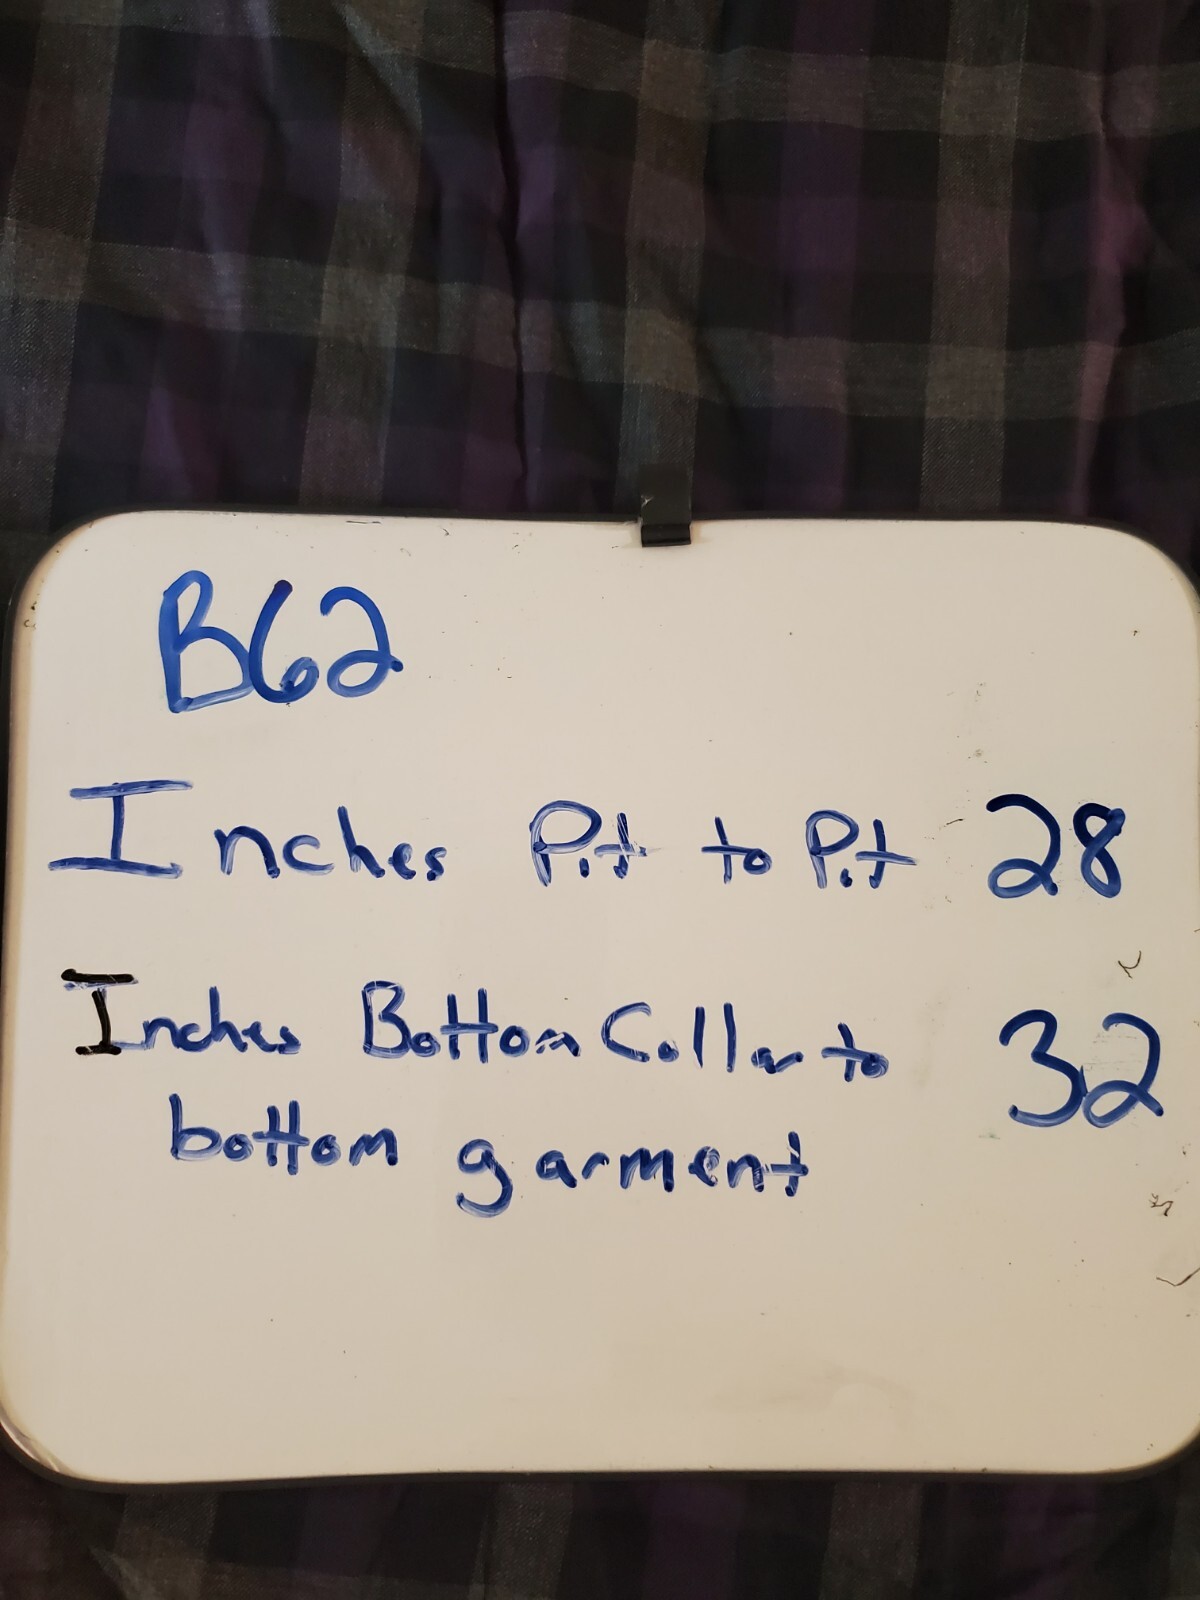 B62
Inches Pit to Pit 28
Inches Bottom Collar to 32
bottom garment